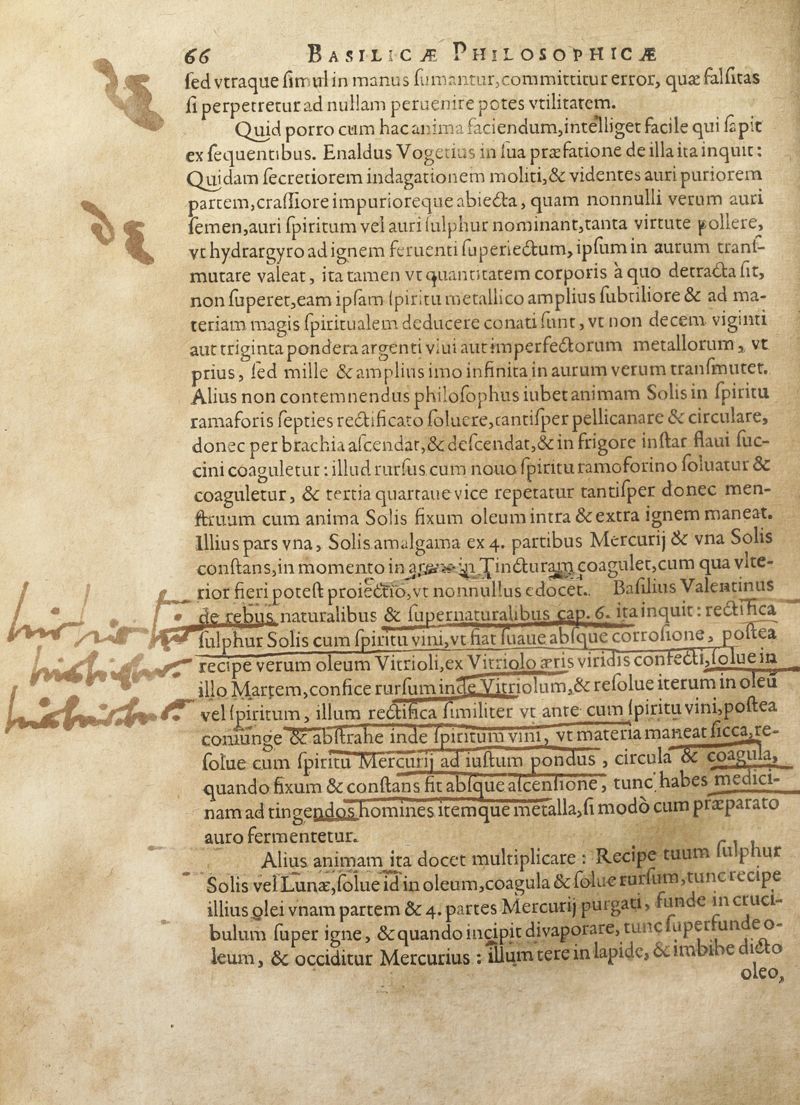 66 BASILICÆ PHILOSOPHICÆ
ſed vtraque ſimul in manus ſumantur, committitur error, quæ falſitas
ſi perpetretur ad nullam peruenire potes vtilitatem.
Quid porro cum hac anima faciendum, intelliget facile qui ſapit
ex ſequentibus. Enaldus Vogetius in ſua præfatione de illa ita inquit:
Quidam ſecretiorem indagationem moliti, & videntes auri puriorem
partem, craſſiore impurioreque abiecta, quam nonnulli verum auri
ſemen, auri ſpiritum vel auri ſulphur nominant, tanta virtute pollere,
vt hydrargyro ad ignem feruenti ſuperiectum, ipſum in aurum tranſ-
mutare valeat, ita tamen vt quantitatem corporis à quo detracta ſit,
non ſuperet, eam ipſam ſpiritu metallico amplius ſubtiliore & ad ma-
teriam magis ſpiritualem deducere conati ſunt, vt non decem viginti
aut triginta pondera argenti viui aut imperfectorum metallorum, vt
prius, ſed mille & amplius imo infinita in aurum verum tranſmutet.
Alius non contemnendus philoſophus iubet animam Solis in ſpiritu
ramaforis ſepties rectificato ſoluere, tantiſper pellicanare & circulare,
donec per brachia aſcendat, & deſcendat, & in frigore inſtar flaui ſuc-
cini coaguletur: illud rurſus cum nouo ſpiritu ramoforino ſoluatur &
coaguletur, & tertia quartaue vice repetatur tantiſper donec men-
ſtruum cum anima Solis fixum oleum intra & extra ignem maneat.
Illius pars vna, Solis amalgama ex 4. partibus Mercurij & vna Solis
conſtans, in momento in Tincturam coagulet, cum qua vlte-
rior fieri poteſt proiectio, vt nonnullus edocet. Baſilius Valentinus
de rebus naturalibus & ſupernaturalibus cap. 6. ita inquit: rectifica
ſulphur Solis cum ſpiritu vini, vt fiat ſuaue abſque corroſione, poſtea
recipe verum oleum Vitrioli, ex Vitriolo æris viridis confecti, ſolue in
illo Martem, confice rurſum inde Vitriolum, & reſolue iterum in oleū
vel ſpiritum, illum rectifica ſimiliter vt ante cum ſpiritu vini, poſtea
coniunge & abſtrahe inde ſpiritum vini, vt materia maneat ſicca, re-
ſolue cum ſpiritu Mercurij ad iuſtum pondus, circula & coagula,
quando fixum & conſtans fit abſque aſcenſione, tunc habes medici-
nam ad tingendos homines itemque metalla, ſi modò cum præparato
auro fermentetur.
Alius animam ita docet multiplicare: Recipe tuum ſulphur
Solis vel Lunæ, ſolue id in oleum, coagula & ſolue rurſum, tunc recipe
illius olei vnam partem & 4. partes Mercurij purgati, funde in cruci-
bulum ſuper igne, & quando incipit divaporare, tunc ſuperfunde o-
leum, & occiditur Mercurius: illum tere in lapide, & imbibe dicto
oleo,